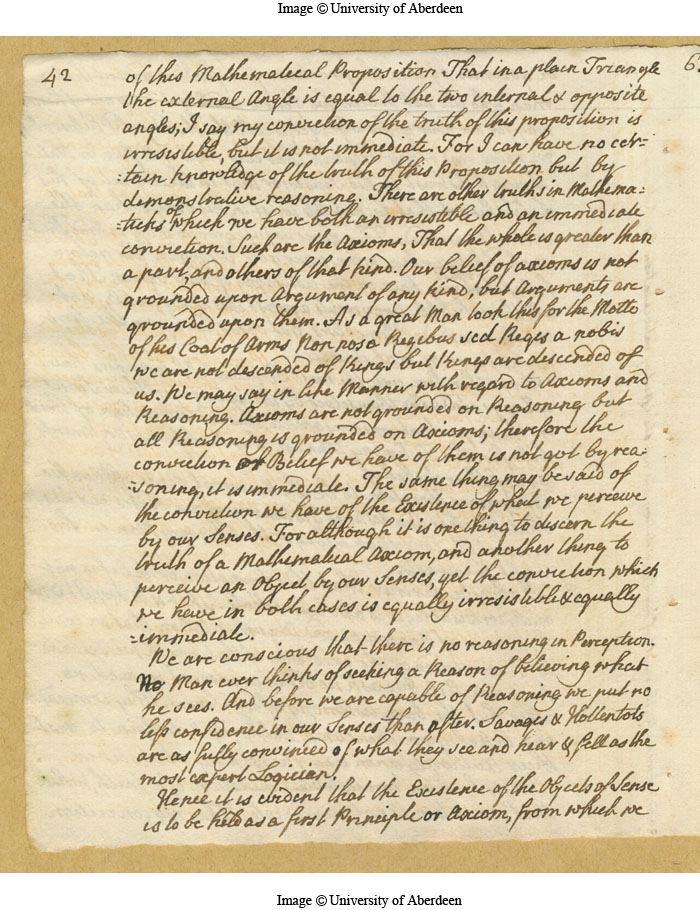 Image © University of Aberdeen
42
of this Mathematical Proposition That in a plain Triangle
the external Angle is equal to the two internal & opposite
angles; I say my conviction of the truth of this proposition is
irresistible, but it is not immediate. For I can have no cer-
-tain knowledge of the truth of this Proposition but by
demonstrative reasoning. There are other truths in Mathema-
-ticks of which we have both an irresistible and an immediate
conviction. Such are the Axioms, That the whole is greater than
a part, and others of that kind. Our belief of axioms is not
grounded upon Argument of any kind, but Arguments are
grounded upon them. As a great Man took this for the Motto
of his Coat of Arms Non nos a Regibus sed Reges a nobis
we are not descended of Kings but Kings are descended of
us. We may say in like Manner with regard to Axioms and
Reasoning. Axioms are not grounded on Reasoning but
all Reasoning is grounded on Axioms; therefore the
conviction or Belief we have of them is not got by rea-
-soning, it is immediate. The same thing may be said of
the conviction we have of the Existence of what we perceive
by our Senses. For although it is one thing to discern the
truth of a Mathematical Axiom, and another thing to
perceive an Object by our Senses, yet the conviction which
we have in both cases is equally irresistible & equally
-immediate.
We are conscious that there is no reasoning in Perception.
No Man ever thinks of seeking a Reason of believing what
he sees. And before we are capable of Reasoning we put no
less confidence in our Senses than after. Savages & Hottentots
are as fully convinced of what they see and hear & fell as the
most expert Logician.
Hence it is evident that the Existence of the Objects of Sense
is to be held as a first Principle or Axiom, from which we
Image © University of Aberdeen